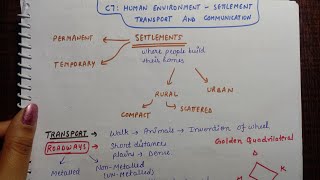 C7: HUMAN ENVIRONMENT - SETTLEMENT
TRANSPORT AND COMMUNICATION
PERMANENT
SETTLEMENTS
where people build
their homes
TEMPORARY
RURAL
URBAN
COMPACT
SCATTERED
TRANSPORT → Walk → Animals → Invention of wheel
ROADWAYS → Short distances
Golden Quadrilateral
Plains → Dense
Metalled
Non-Metalled
(Un-Metalled)
D
K
M